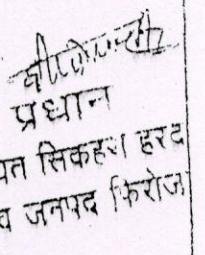 प्रधान
पत सिकहरा हरद
व जनपद फिरोज